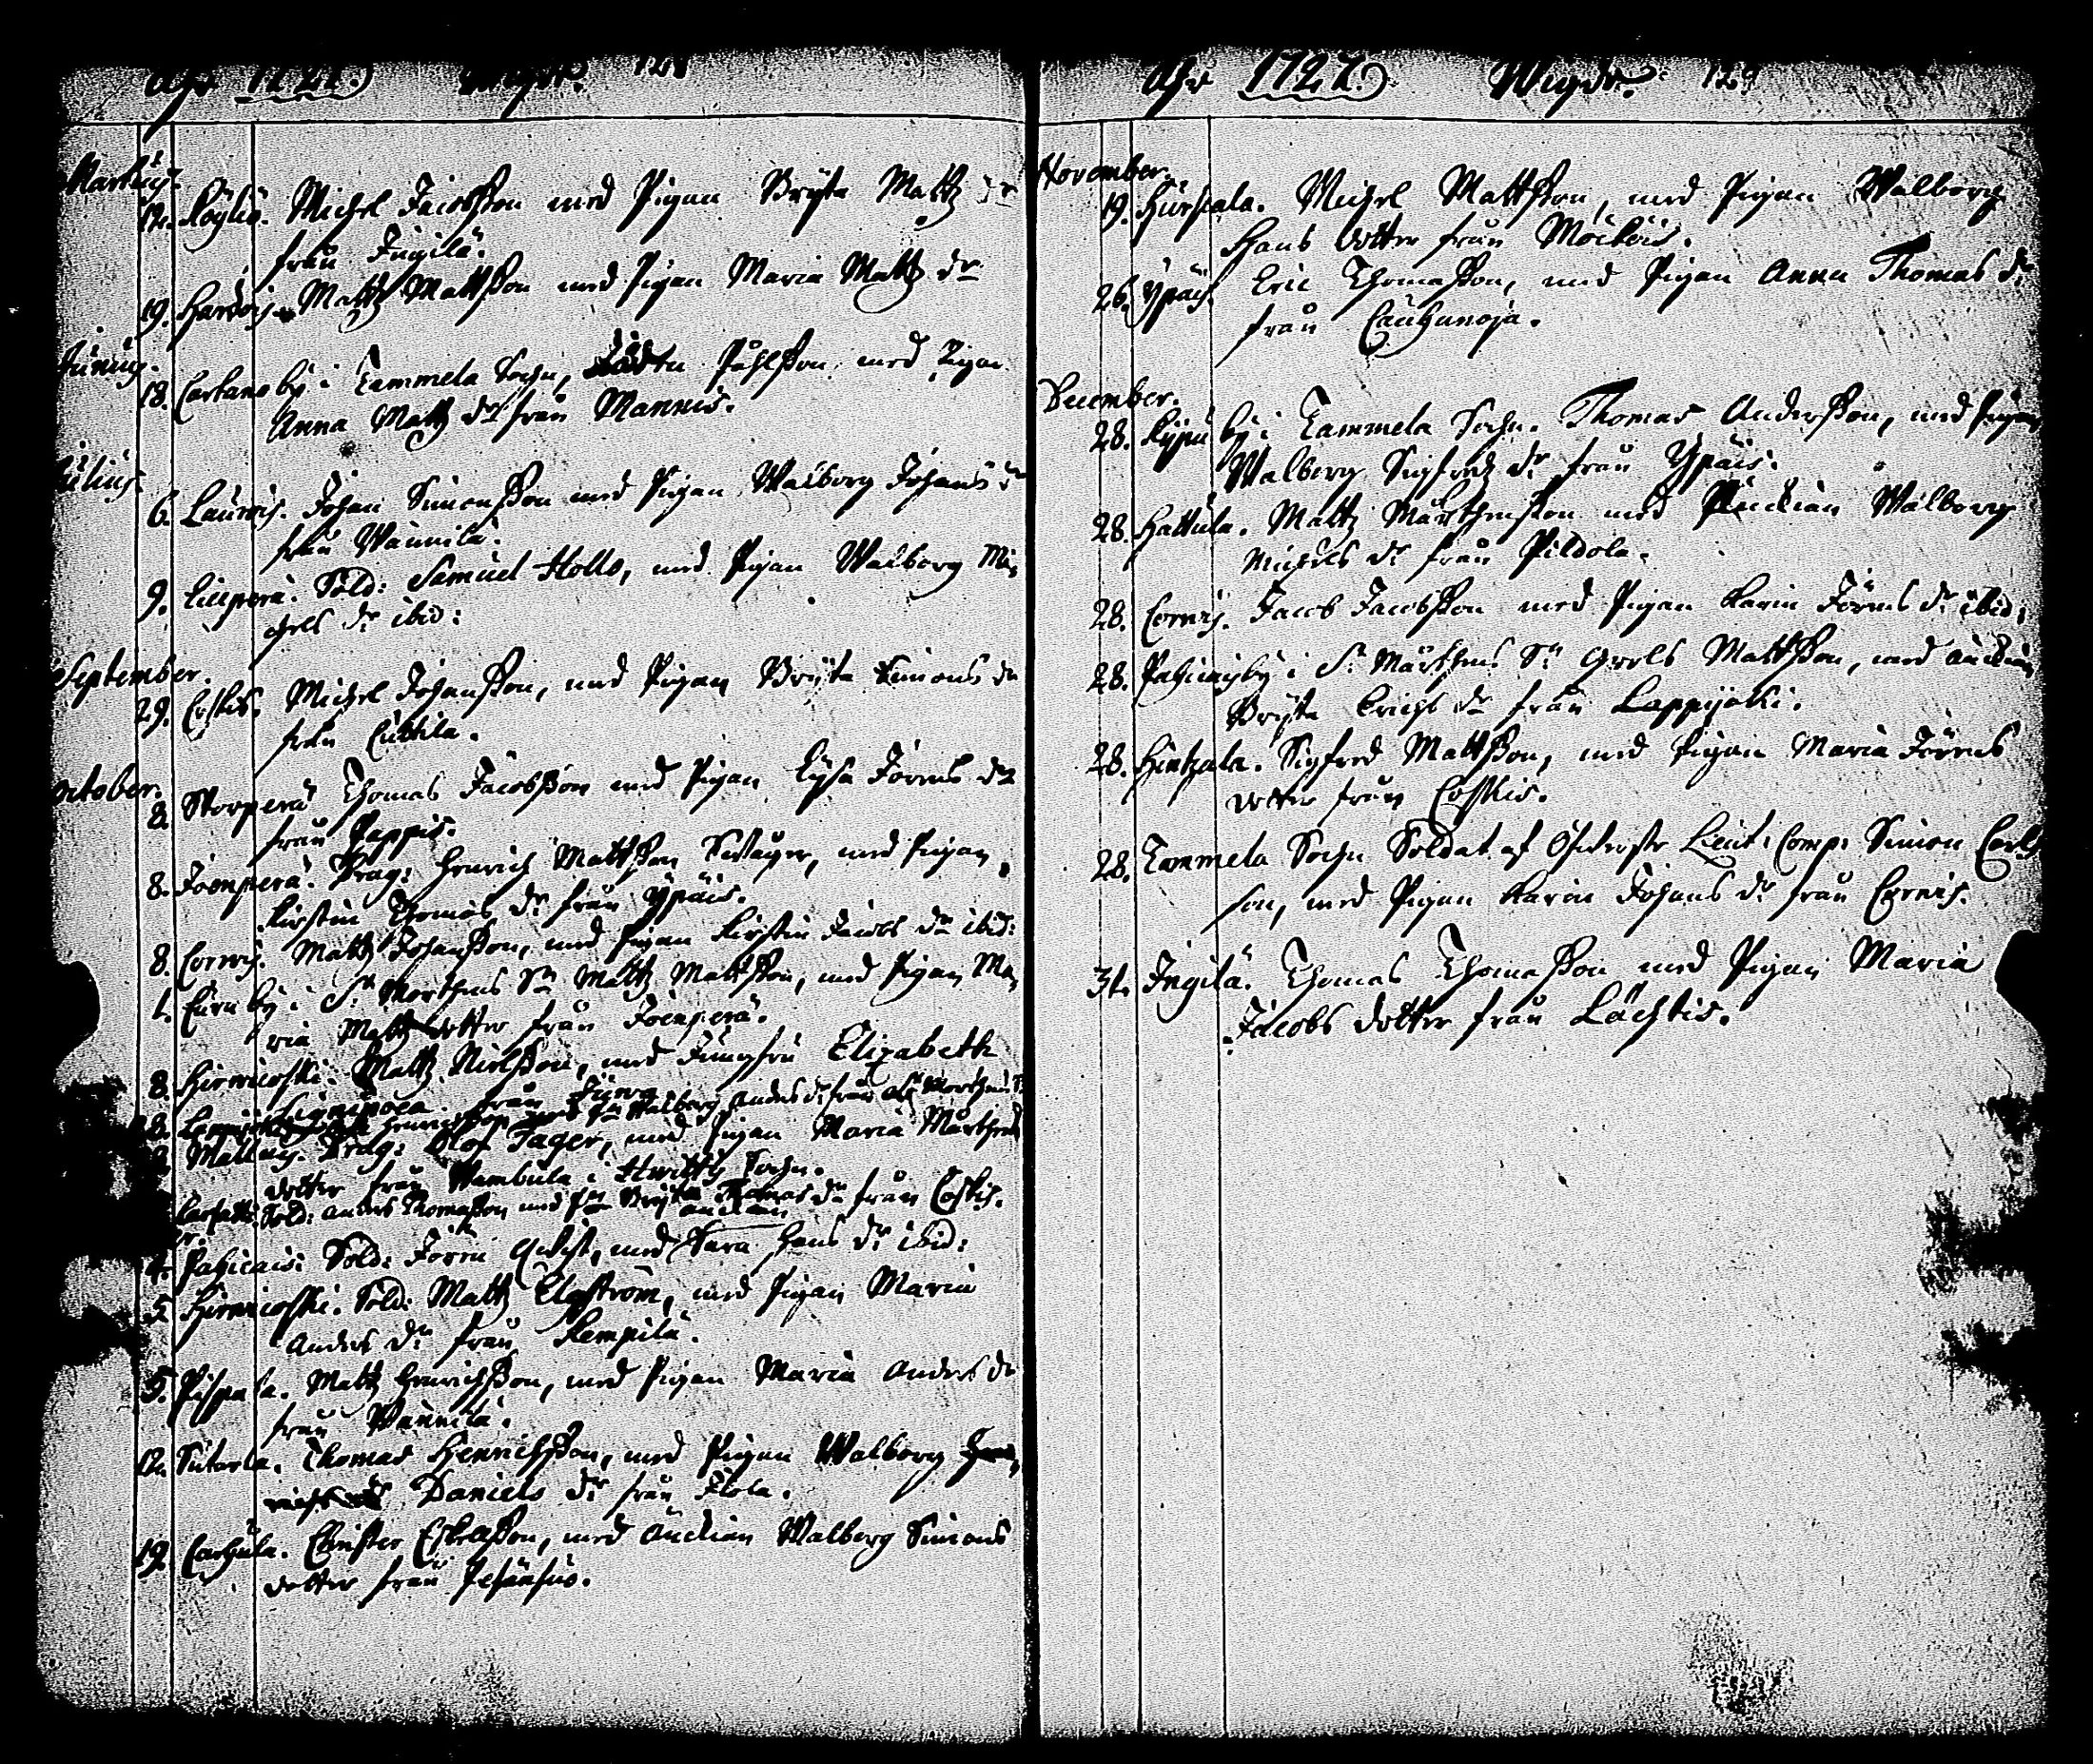 Åhr 1727. Wigde. 128
Martius.
12. Röghö. Michel Jacobsson med Pigan Bryta Mattz dr
från Jngilä.
19. Hardois. Mattz Mattsson med Pigan Maria Mattz dr
Junius.
18. Cartano by i Tammela Sochn, Påhlsson med Pigan
Anna Mattz dr från Mannis.
Julius.
6. Laurois. Johan Simonsson med Pigan Walborg Johans dr
från Wännilä.
9. Lillperä. Sold: Samuel Hollo, med Pigan Walborg Mi-
chels dr ibid:
September.
29. Coskis. Michel Johansson, med Pigan Bryta Simons dr
från Cuttila.
October.
8. Storperä Thomas Jacobsson med Pigan Lysa Jörens dr
från Pappis.
8. Joenperä. Drag: Henrich Mattsson med Pigan
Kirstin Thomas dr från Ypäis.
8. Corvis. Mattz Johansson, med Pigan Kirstin Jacobs dr ibid:
1. by i St Morthens Sn Mattz Mattsson, med Pigan Ma-
ria Mattz dotter från Joenperä.
8. Hirvicoski. Mattz Nielsson, med Jungfru Elizabeth
från
Walborg Anders dr från St Morthens
Mällais. Drag: Olof Jäger, med Pigan Maria Mårthens
dotter från Wambula i Huittis Sochn.
Sold: Anders Thomasson med Pn Bryta Thomas dr från Coskis.
änckian
4. Pahicais: Sold: Jören Qvist, med Sara Hans dr ibid:
5. Hirvicoski. Sold: Mattz Elgström, med Pigan Maria
Anders dr från Kempilä.
5. Pispala. Mattz Henrichsson, med Pigan Maria Anders dr
från Wännilä.
12. Sutarla. Thomas Henrichsson, med Pigan Walborg
Daniels dr från Flola.
19. Carhula. Christer Eskelsson, med änckian Walborg Simons
dotter från Pesänsuo.
Åhr 1727. Wigde. 129
November.
19. Hurskala. Michel Mattsson, med Pigan Walborg
Hans dotter från Möckois.
26. Ypäis. Eric Thomasson, med Pigan Anna Thomas dr
från Cauhanoja.
December.
28. Kypu by i Tammela Sochn. Thomas Andersson, med Pigan
Walborg Sigfredz dr från Ypäis.
28. Hattula. Mattz Mårthensson med Änckian Walborg
Michels dr från Pildola.
28. Corvis. Jacob Jacobsson med Pigan Karin Jörens dr ibid:
28. Pahicais by i St Mårthens Sn Greels Mattsson, med änckian
Bryta Erichs dr från Lappijoki.
28. Hintzala. Sigfred Mattsson, med Pigan Maria Jörens
dotter från Coskis.
28. Tammela Sochn Soldat af Öfwerste Lieut: Comp: Simon Carls
son, med Pigan Karin Johans dr från Corvis.
31. Jngilä. Thomas Thomasson med Pigan Maria
Jacobs dotter från Lächtis.